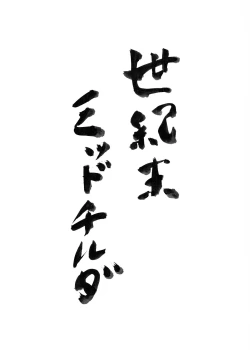 世紀末
ミッドチルダ